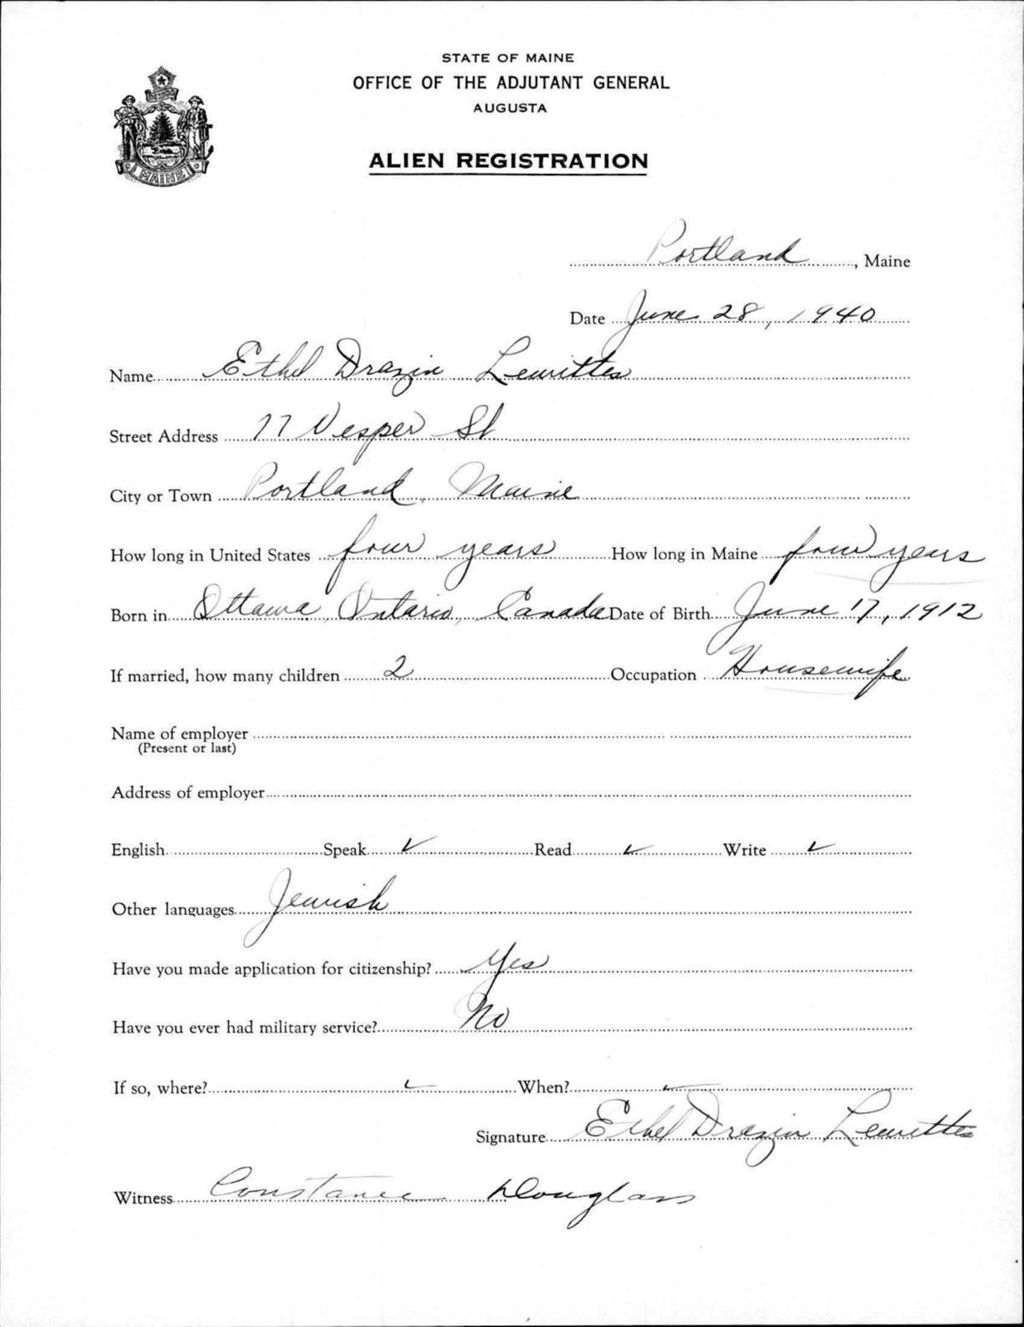 STATE OF MAINE
OFFICE OF THE ADJUTANT GENERAL
AUGUSTA
MAINE
ALIEN REGISTRATION
Portland, Maine
Date June 28, 1940
Name Ethel Drazin Lewittes
Street Address 77 Vesper St
City or Town Portland, Maine
How long in United States four years How long in Maine four years
Born in Ottawa, Ontario, Canada Date of Birth June 17, 1912
If married, how many children 2 Occupation Housewife
Name of employer
(Present or last)
Address of employer
English Speak ✓ Read ✓ Write ✓
Other languages Jewish
Have you made application for citizenship? Yes
Have you ever had military service? No
If so, where? ✓ When? ✓
Signature Ethel Drazin Lewittes
Witness Constance Douglass